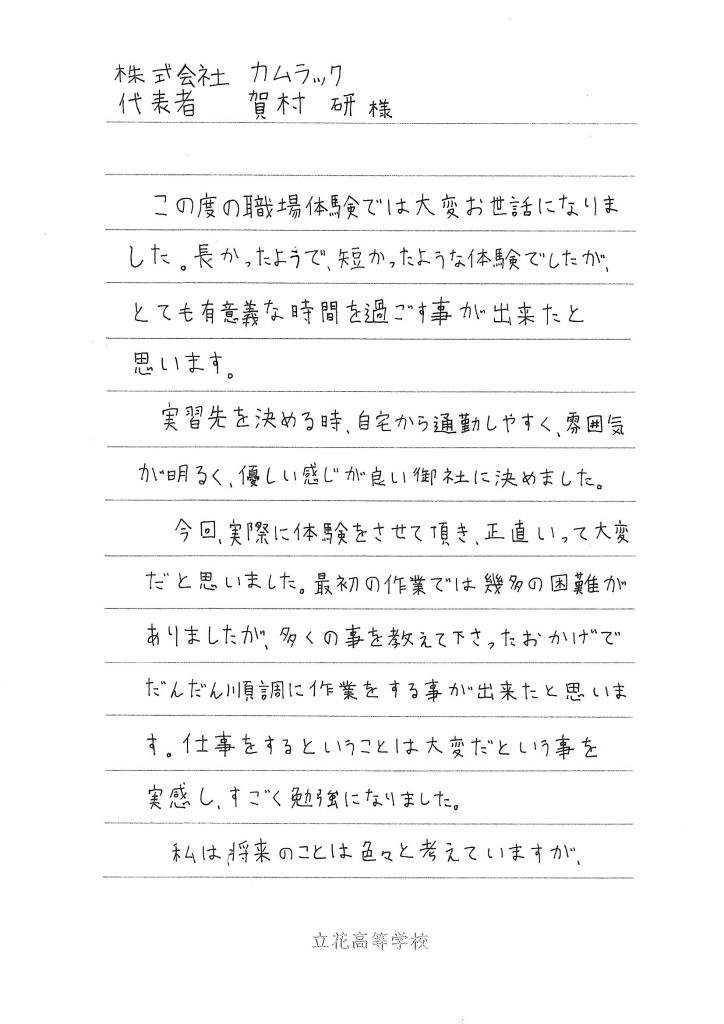 株式会社 カムラック
代表者 賀村 研 様
この度の職場体験では大変お世話になりま
した。長かったようで、短かったような体験でしたが、
とても有意義な時間を過ごす事が出来たと
思います。
実習先を決める時、自宅から通勤しやすく、雰囲気
が明るく、優しい感じが良い御社に決めました。
今回、実際に体験をさせて頂き、正直いって大変
だと思いました。最初の作業では幾多の困難が
ありましたが、多くの事を教えて下さったおかげで
だんだん順調に作業をする事が出来たと思いま
す。仕事をするということは大変だという事を
実感し、すごく勉強になりました。
私は将来のことは色々と考えていますが、
立花高等学校